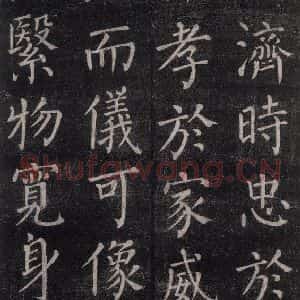 濟時忠於
孝於家威
而儀可像
繫物寬身
Shufawang.CN